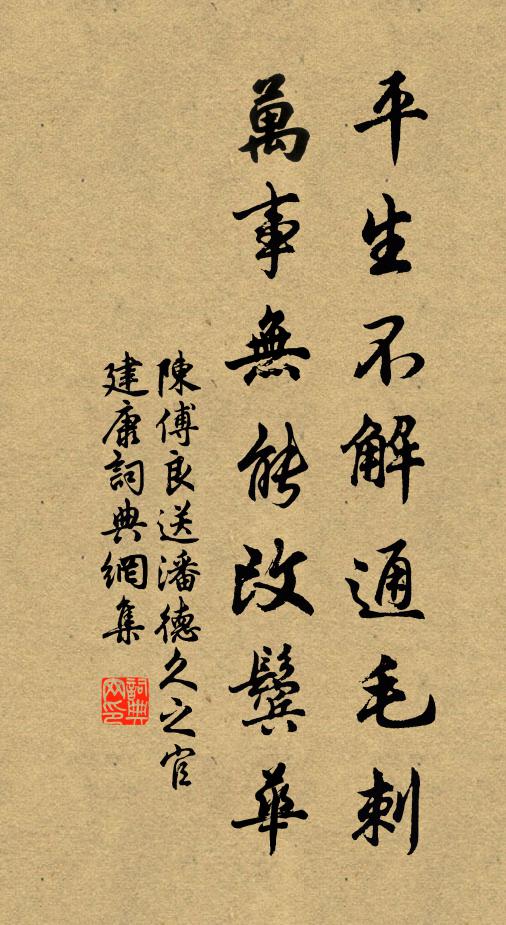 平生不解通毛刺
萬事無能改鬢華
陳傅良送潘德久之官
建康詞典網集
詞典网印